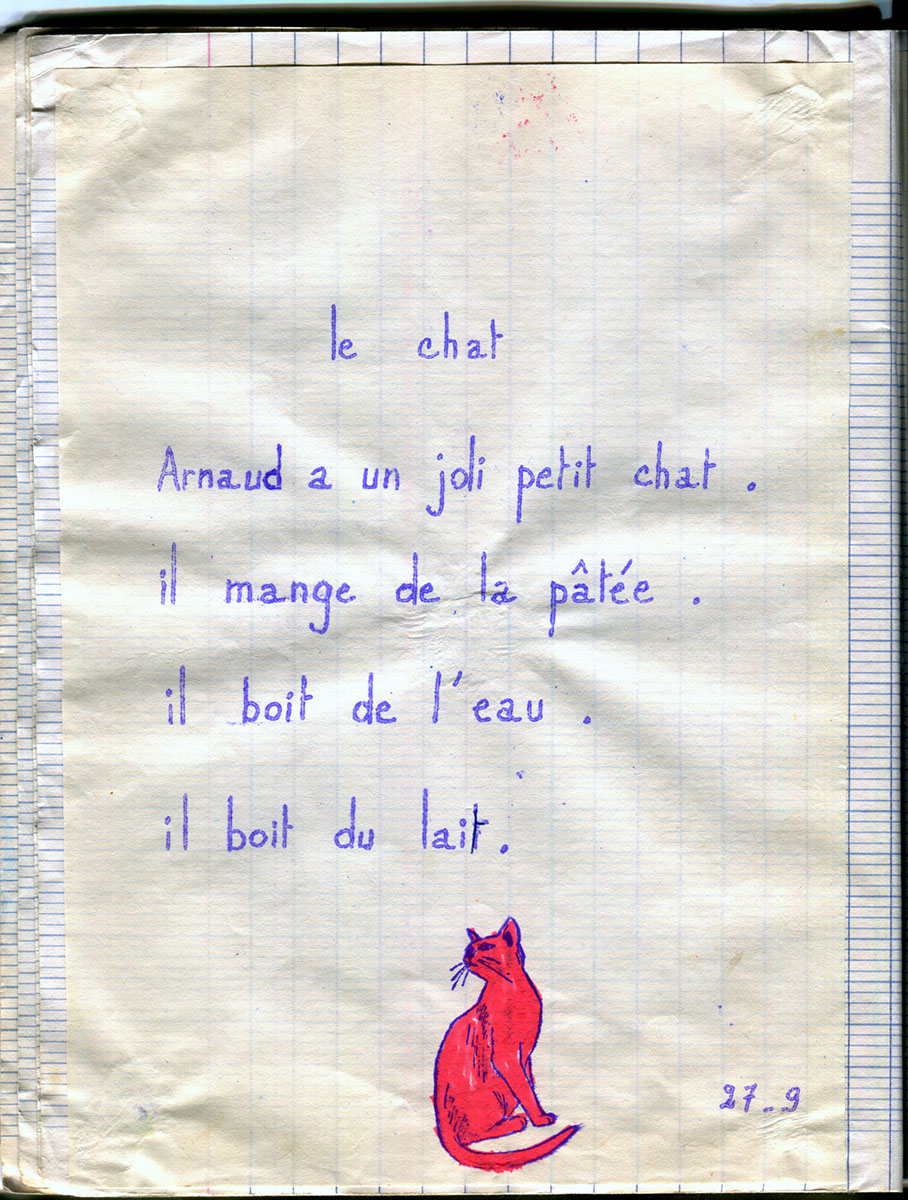 le chat
Arnaud a un joli petit chat .
il mange de la pâtée .
il boit de l'eau .
il boit du lait .
27_9